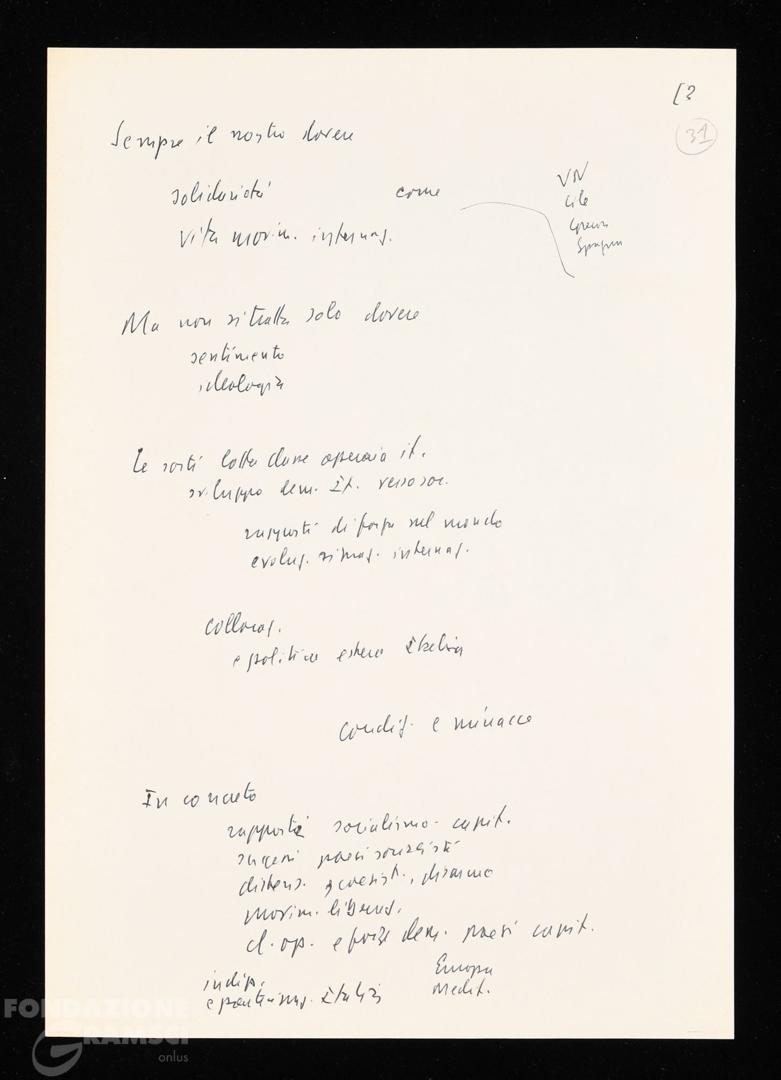 [3
31
Sempre il nostro dovere
solidarietà come
vita movim. internaz.
VN
Cile
Grecia
Spagna
Ma non si tratta solo dovere
sentimento
ideologia
Le sorti lotta classe operaia it.
sviluppo dem. It. verso soc.
rapporti di forza nel mondo
evoluz. situaz. internaz.
collocaz.
e politica estera Italia
condiz. e minacce
In concreto
rapporti socialismo - capit.
successi paesi socialisti
distens. coesist., disarmo
movim. liberaz.
cl. op. e forze dem. paesi capit.
indip.
Italia
Europa
Medit.
FONDAZIONE
GRAMSCI
onlus